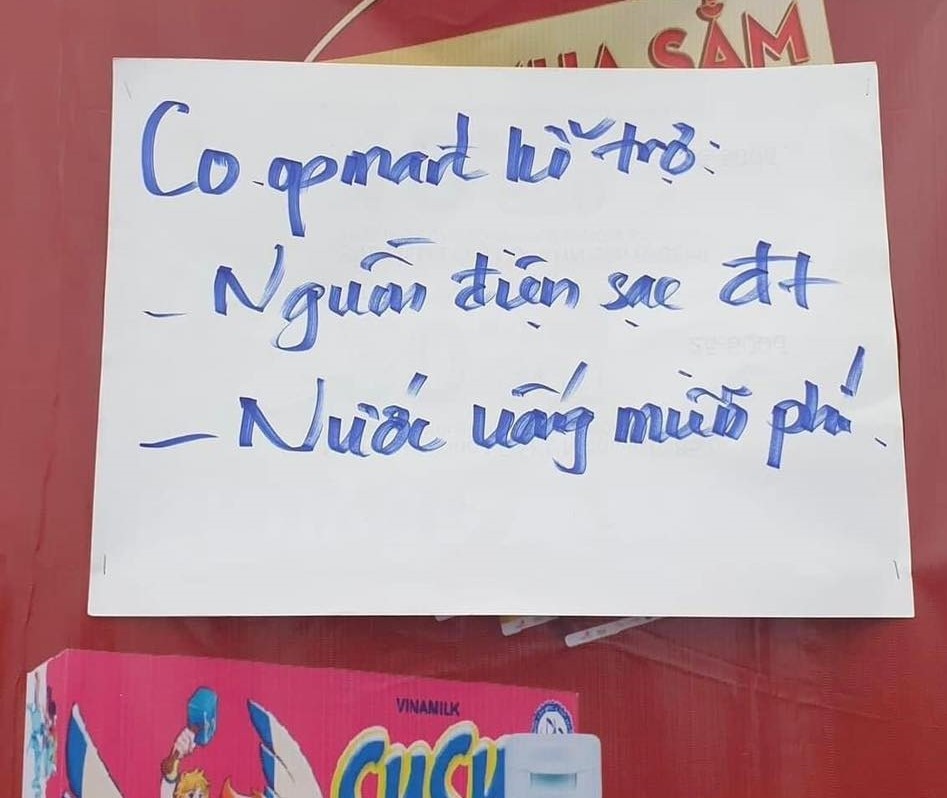 MUA SẮM
Co.opmart hỗ trợ:
- Nguồn điện sạc đt
- Nước uống miễn phí.
VINAMILK
SuSu